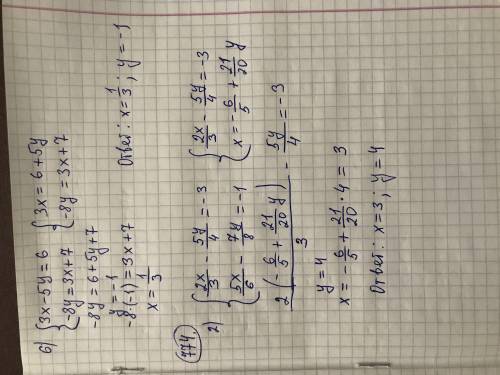 б) { 3x - 5y = 6 { 3x = 6 + 5y
-8y = 3x + 7 -8y = 3x + 7
-8y = 6 + 5y + 7
y = -1
-8·(-1) = 3x + 7
x = 1/3 Ответ: x = 1/3; y = -1
774.
2) { 2x/3 - 5y/4 = -3 { 2x/3 - 5y/4 = -3
5x/6 - 7y/8 = -1 x = -6/5 + 21/20 y
2(-6/5 + 21/20 y)/3 - 5y/4 = -3
y = 4
x = -6/5 + 21/20 · 4 = 3
Ответ: x = 3; y = 4